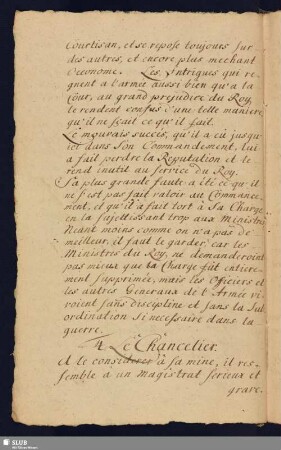 Courtisan, et se repose toujours sur
des autres, et encore plus mechant
l'econome. Les intrigues qui re-
gnent a l'armée aussi bien qu'a la
Cour, au grand prejudice du Roy,
le rendent confus d'une telle maniere
qu'il ne sçait ce qu'il fait.
Le mauvais succés, qu'il a eû jusqu'
ici dans son Commandement, lui
a fait perdre la Reputation et le
rend inutil au service du Roy.
Sa plus grande faute a été ce qu'il
ne s'est pas fait valoir au Commance-
ment, et qu'il a fait tort à sa Charge
en la sujettissant trop aux Ministres
Neant moins comme on n'a pas de
meilleur, il faut le garder, car les
Ministres du Roy, ne demanderoient
pas mieux que la Charge fût entiere-
ment supprimée, mais les Officiers et
les autres Generaux de l'Armée vi-
vroient sans discipline et sans la Sub-
ordination si necessaire dans la
guerre.
Le Chancelier.
A le considerer à sa mine, il res-
semble a un Magistrat serieux et
grave.
SLUB
Wir führen Wissen.